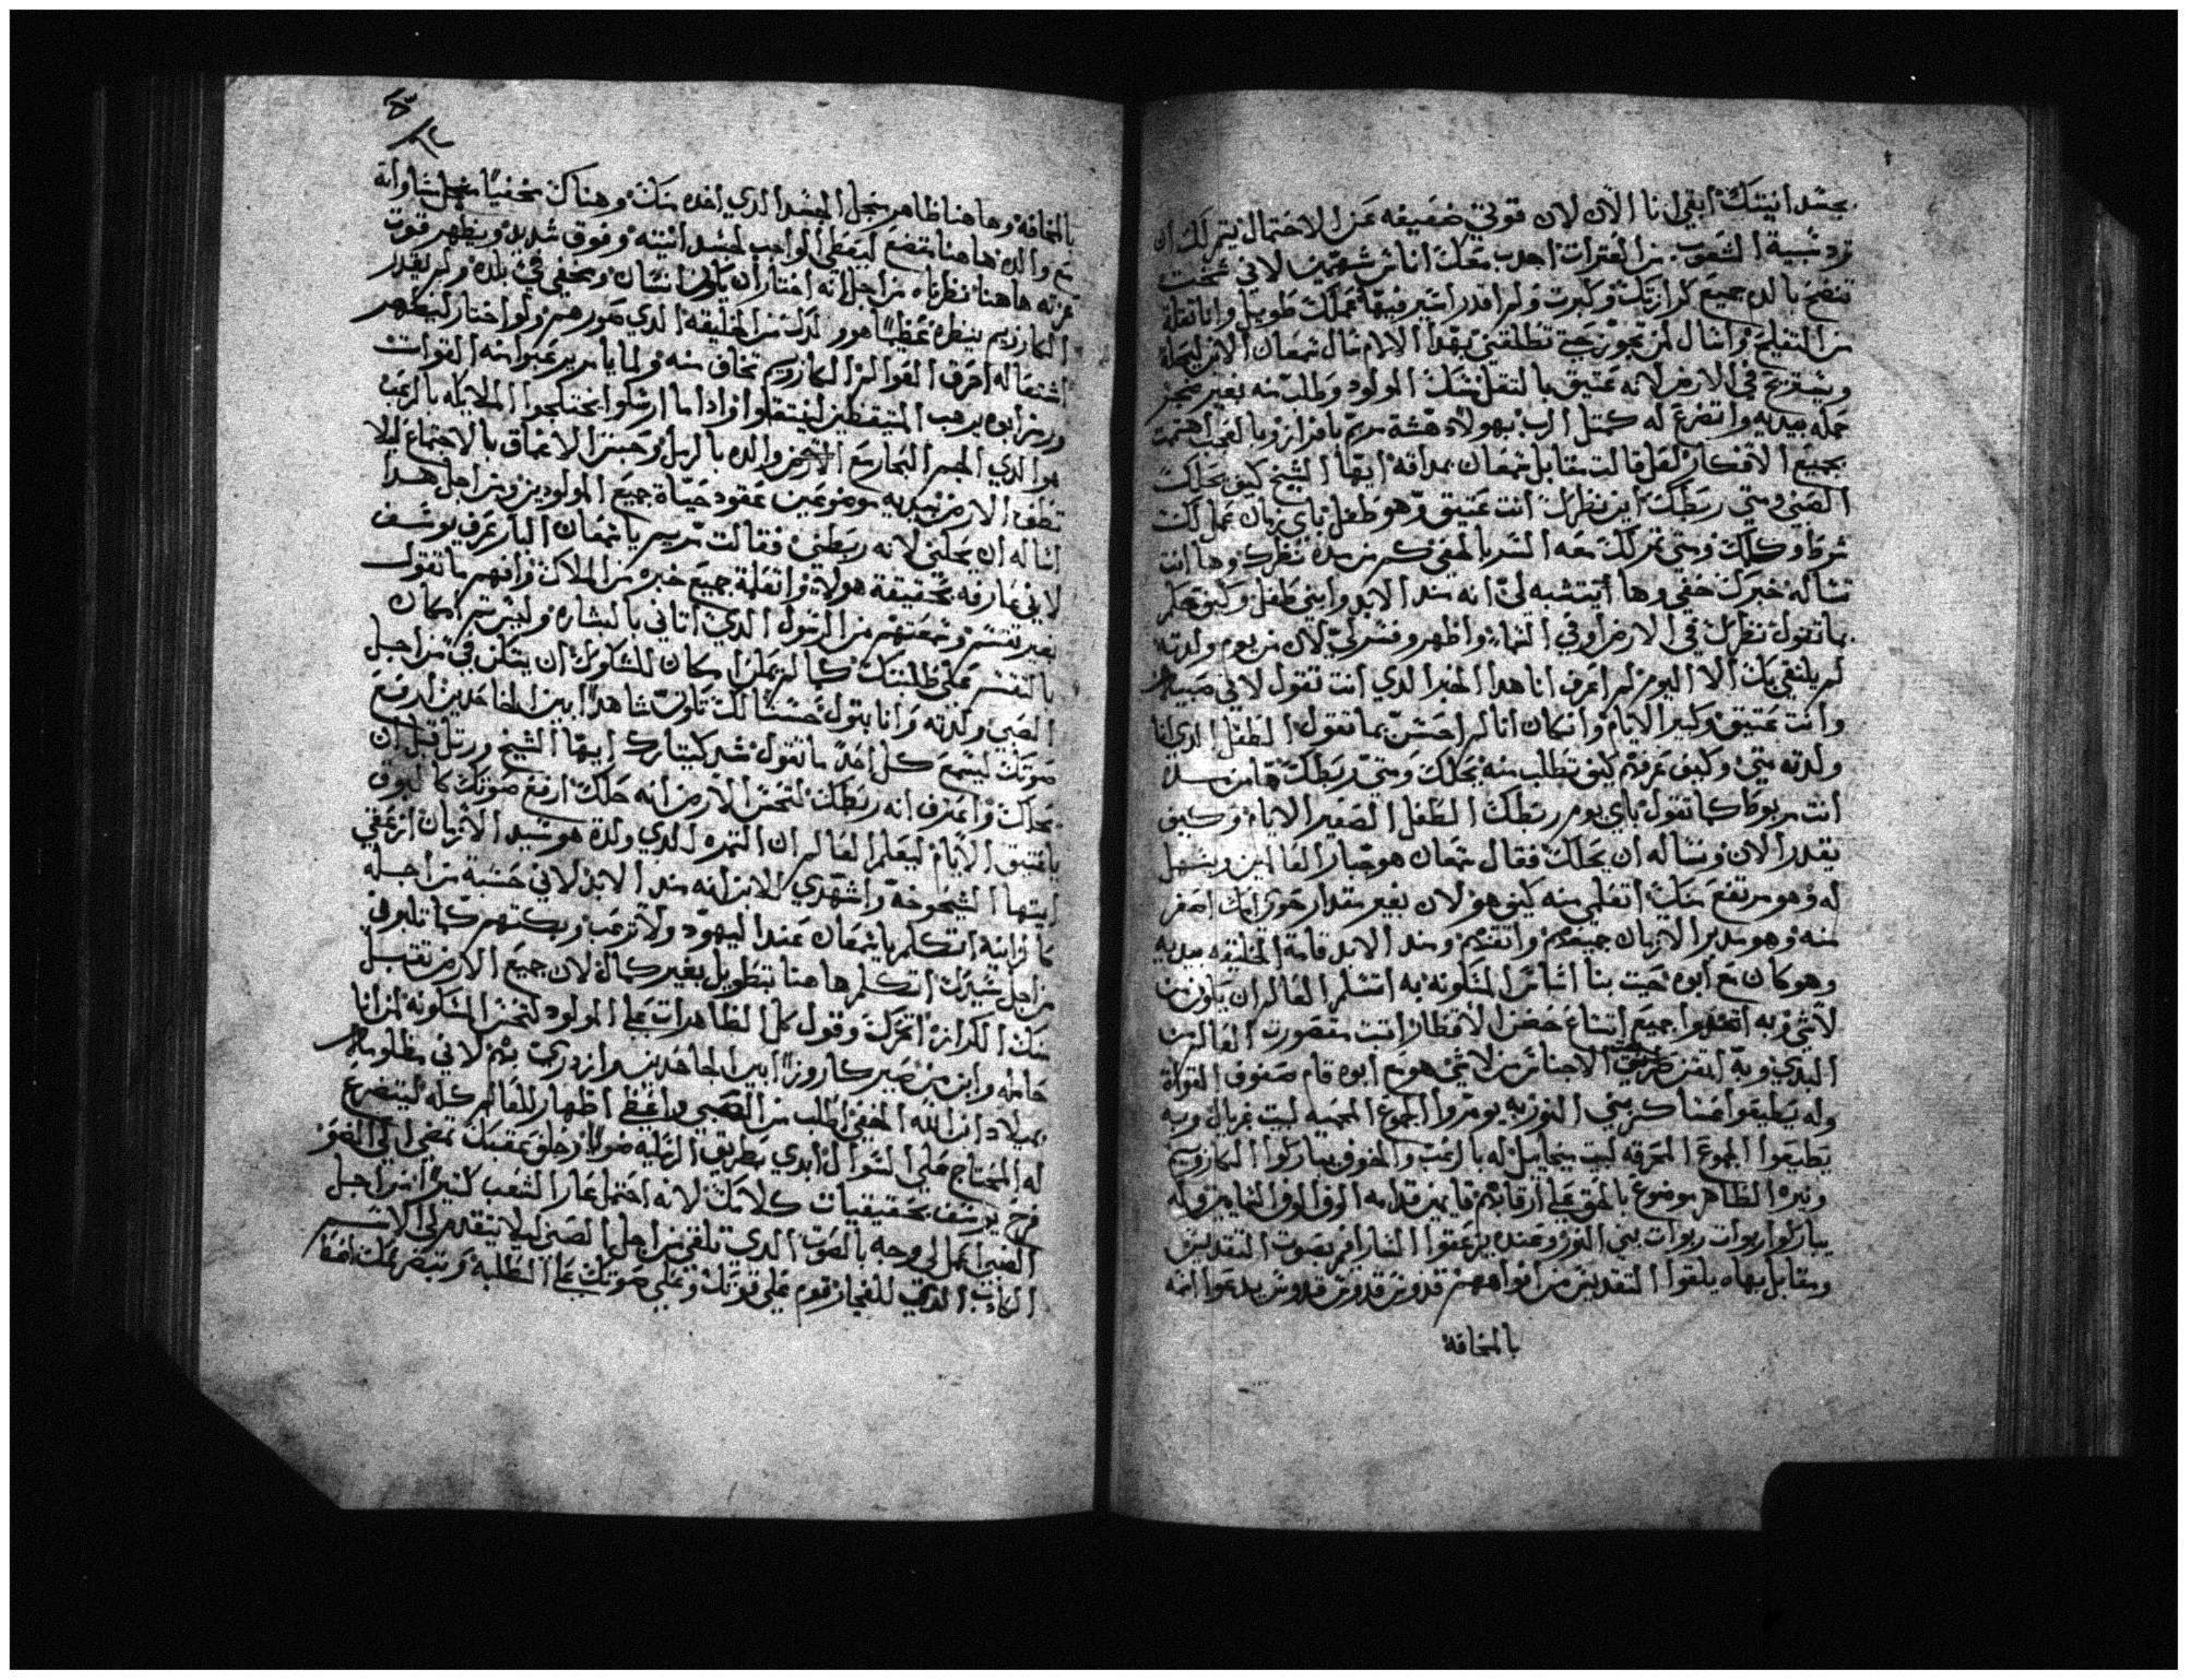 بجسدانيتك ابقي انا الان لان قوتي ضعيفه عن الاحتمال يتم لك ان
ترد شبية الشعوب من العترات اجدب معك اناس شهيين لاني شخت
تنضح بالدم جميع كرازتك وكبرت ولم اقدر اسير فيها عملك طويل وانا تقلة
من التفليح واسال لمن يجوز حتي تطلقني بهدا الالام سال شمعان الابن لينجاه
ويستريح في الارض لانه عتيق بالتقل مسك المولود وطلب منه بغير عجز
حمله بيديه واتضرع له كمثل الرب بهولاء هشة مريم بافراز وبالعجب اهتمت
بجميع الافكار لعل قالت مقابل شمعان بمداقه ايها الشيخ كيف يحلك
الصبي ومتي ربطك اين نظرك انت عتيق وهو طفل باي زمان عمل لك
شرطا وكلك ومتي تم لك معه السر بالمخفي كم من مده نظرك وها انت
تساله خبرك خفي وها انت تشبه لي انه مند الابد وابني طفل وكيف تعلم
ما تقول نظرك في الارض او في السماء واظهر وفسر لي لان من يوم ولدته
لم يلتقي بك الا اليوم لم اعرف انا هدا الخبر الدي انت تقول لاني صبيه
وانت عتيق وكبير الايام وان كان انا لم احسن بما تقول الطفل الدي انا
ولدته متي وكيف عرفته كيف تطلب منه يحلك ومتي ربطك ها من مده
انت مربوطا كما تقول باي يوم ربطك الطفل الصغير الايام وكيف
يقدر الان وتساله ان يحلك فقال شمعان هو جبار العالمين ويسهل
له وهو مرتفع منك اتعلمي منه كيف هو لان بغير مقدار حوي لمك اصغر
منه وهو مدبر الازمان جميعهم واتقنهم ومند الابد قامة الخليقه بيديه
وهو كان مع ابوه حيت بنا اساس المسكونه به استلم العالم ان يكون من
لاشي وبه اتخدوا جميع اتساع حضن الاقطار انت متصورت العالمين
البدي وبه اتقن طريق الاجناس من لاشي هو مع ابوه قام صفوف القواة
وله يطيعوا عساكر بني النور به يومروا الجموع المحميه لبيت غريال وبه
يطيعوا الجموع المحرقه لبيت ميخاييل له بالرعب والخوف يباركوا الكاروبيم
ونيره الظاهر موضوع بالحق علي ارقابهم قايمين قدامه الوف الوف السمايين وله
يباركوا ربوات ربوات بني النور وعنده يزعقوا السارافيم بصوت التقديس
ومقابل بهاه يلقوا التقديس من افواههم قدوس قدوس قدوس يدعوا اسمه
بالمخافة
بالمخافة وها هنا ظاهر من اجل الجسد الدي اخده منك وهناك مخفيا من اجل مساواته
مع والده ها هنا متضع ليعطي الواجب لجسدانيته وفوق شديد ويظهر قوت
عزته ها هنا نظرناه من اجل انه اختار ان يكون انسان ومخفي في بلده ولم يقدر
الكاروبيم ينظره عظيما هو من الخليقه الدي صورهم ولو اختار ليظهر
اشتعاله احرق القوات الكاروبيم تخاف منه ولما يامر يرعبوا منه القوات
ورمز ابوه يرهب المتيقظين لينتقلوا وادا ما ارسلوا يختلجوا الملايكه بالرعب
هوا الدي الجسر البحار مع الارض والده بالرمل وحبس الاعماق بالاجتماع ليلا
تطف الارض بيديه موضوعين عقود حياة جميع المولودين ومن اجل هدا
اساله ان يحلني لانه ربطني فقالت مريم يا شمعان البار عرف يوسف
لاني عارفه بحقيقة هولاء واتعلمة جميع خبره من الملاك وافهم ما تقول
بغير تفتش وسمعتهم من الرسول الدي اتاني بالبشاره وليس تم امكان
بالتفتش علي طلبتك كما لم يمكن امكان للشكوك ان يتكن في من اجل
الصبي ولدته وانا بتول حسنا لك تكون شاهدا بين الجاحدين ارفع
صوتك ليسمع كل احد ما تقول شمر كيتارك ايها الشيخ ورتل قبل ان
يحلك واعترف انه ربطك لتحس الارض انه حلك ارفع صوتك كالبوق
يا عتيق الايام ليعلم العالم ان التمره الدي ولدة هو سيد الازمان ازعقي
ايتها الشيخوخة واشهدي للابن انه مند الابد لاني حسبة من اجله
كازانية اتكلم يا شمعان عند اليهود ولا ترعب وبكتهم كما تلهم في
من اجل سيرك اتكلم ها هنا بتطويل بغير كمالة لان جميع الارض تقبل
منك الكرازة اتحرك وقول كل الظاهرات علي المولود لتحس المسكونة لمن انا
حامله وابن من يصير كاروزا بين الجاحدين
بميلاد ابن الله المخفي اطلب من الصبي واعطي اظهار للعالم كله ليتضرع
له المحتاج علي السوال ابدي بطريق الزليه مولاه وحلق عقبتك تمضي الي الضو
فرح يوسف بحقيقيات كلامك لانه احتمل عار الشعب كتيرا من اجل
الصبي اعمل لي وجه بالصوت الدي تلقي من اجل الصبي ليلا يتقدم لي الاسم
الكادب الدي للفجار قوم علي قوتك وعلي صوتك علي الطلبة وتبصر عملك اضطا